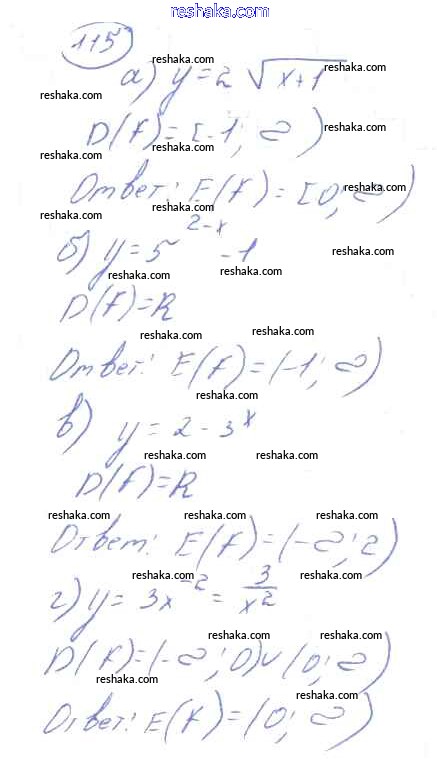 reshaka.com
115
reshaka.com
а) y = 2 √x+1
reshaka.com
reshaka.com
D(f) = [-1; ∞)
reshaka.com
reshaka.com
reshaka.com
Ответ: E(f) = [0; ∞)
reshaka.com
б) y = 5^{2-x} - 1
reshaka.com
reshaka.com
D(f) = R
reshaka.com
reshaka.com
reshaka.com
Ответ: E(f) = (-1; ∞)
reshaka.com
в) y = 2 - 3^x
reshaka.com
reshaka.com
D(f) = R
reshaka.com
reshaka.com
reshaka.com
Ответ: E(f) = (-∞; 2)
reshaka.com
reshaka.com
г) y = 3x^{-2} = 3/x^2
reshaka.com
reshaka.com
D(f) = (-∞; 0) ∪ (0; ∞)
reshaka.com
reshaka.com
Ответ: E(f) = (0; ∞)
reshaka.com
reshaka.com